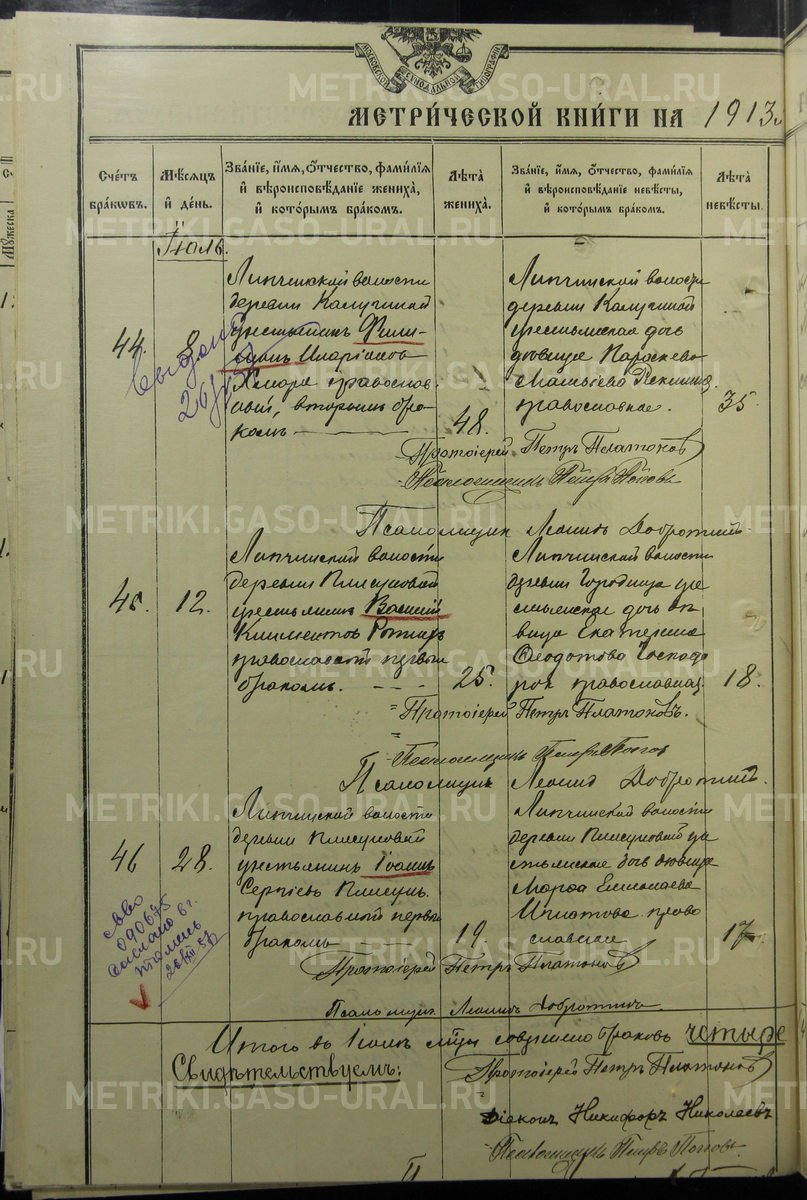 МОСКОВСКОЙ СѴНОДАЛЬНОЙ ТИПОГРАФІИ
МЕТРИ́ЧЕСКОЙ КНИ́ГИ НА 1913 г.
Сче́тъ бра́кωвъ.
Мѣ́сяцъ и҆ де́нь.
Зва́нїе, и҆́мя, ѻ҆́тчество, фами́лїя
и҆ вѣроисповѣ́данїе жениха́,
и҆ кото́рымъ бра́комъ.
Лѣ́та жениха̀.
Зва́нїе, и҆́мя, ѻ҆́тчество, фами́лїя
и҆ вѣроисповѣ́данїе невѣ́сты,
и҆ кото́рымъ бра́комъ.
Лѣ́та невѣ́сты.
Іюль.
44.
8
Липчинской волости
деревни Калугиной
крестьянинъ
Иларіоновъ
православ
ный, вторымъ бра-
комъ
48.
Липчинской волости
деревни Калугиной
крестьянская дочь
дѣвица Параскева
Матвѣева
православная.
35.
Протоіерей Петръ Платоновъ
Псаломщикъ Петръ Поповъ
Псаломщикъ Леонидъ Добротинъ
45.
12.
Липчинской волости
деревни
крестьянинъ Василій
Климентовъ
православный первымъ
бракомъ.
25.
Липчинской волости
деревни Городища кре
стьянская дочь дѣ
вица Екатерина
Ѳеодотова Господа
рок православная.
18.
Протоіерей Петръ Платоновъ.
Псаломщикъ Петръ Поповъ
Псаломщикъ Леонид Добротинъ.
46
28.
Липчинской волости
деревни
крестьянинъ Іоаннъ
Сергіевъ
православный первымъ
бракомъ
19
Липчинской волости
деревни кре
стьянская дочь дѣвица
Марѳа
Игнатова право
славная
17.
Протоіерей Петръ Платоновъ
Псаломщикъ Леонидъ Добротинъ.
090675
Итого въ Іюлѣ м-цѣ совершено браковъ четыре
Свидѣтельствуемъ:
Протоіерей Петръ Платоновъ
Діаконъ Никифоръ Николаевъ
Псаломщикъ Петръ Поповъ
METRIKI.GASO-URAL.RU